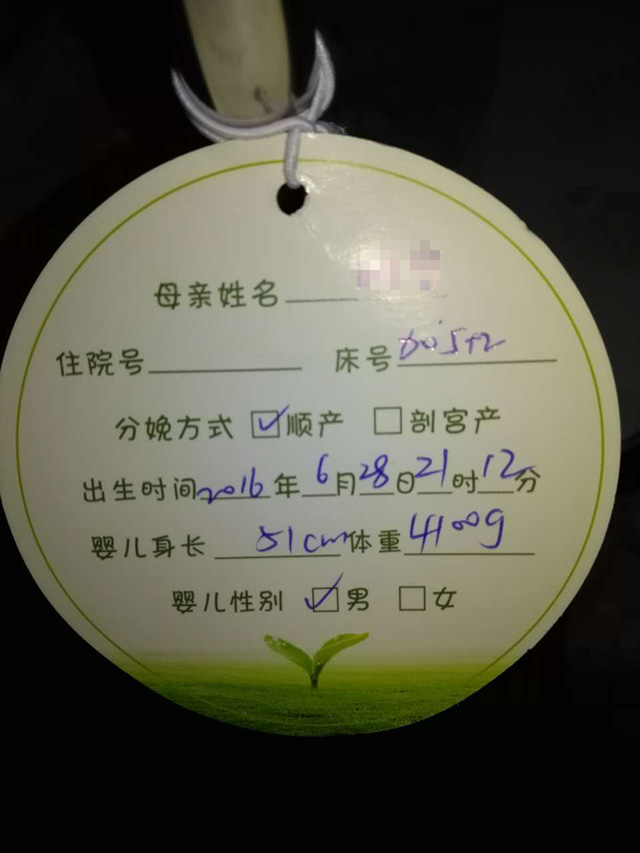 母亲姓名
住院号 床号
分娩方式 ☑顺产 □剖宫产
出生时间2016年6月28日21时12分
婴儿身长 51cm体重4100g
婴儿性别 ☑男 □女